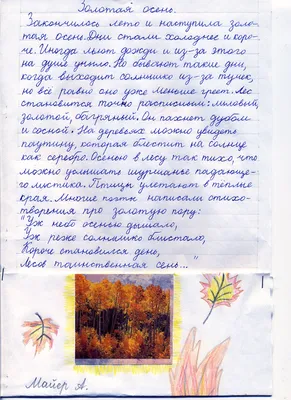 Золотая осень.
Закончилось лето и наступила золо-
тая осень. Дни стали холоднее и коро-
че. Иногда льют дожди и из-за этого
на душе уныло. Но бывают такие дни,
когда выходит солнышко из-за тучек,
но всё равно оно уже меньше греет. Лес
становится точно расписным: лиловый,
золотой, багряный. Он пахнет дубом
и сосной. На деревьях можно увидеть
паутину, которая блестит на солнце
как серебро. Осенью в лесу так тихо, что
можно услышать шуршанье падающе-
го листика. Птицы улетают в теплые
края. Многие поэты написали стихо-
творения про золотую пору:
"Уж небо осенью дышало,
Уж реже солнышко блистало,
Короче становился день,
Лесов таинственная сень..."
Майер А.